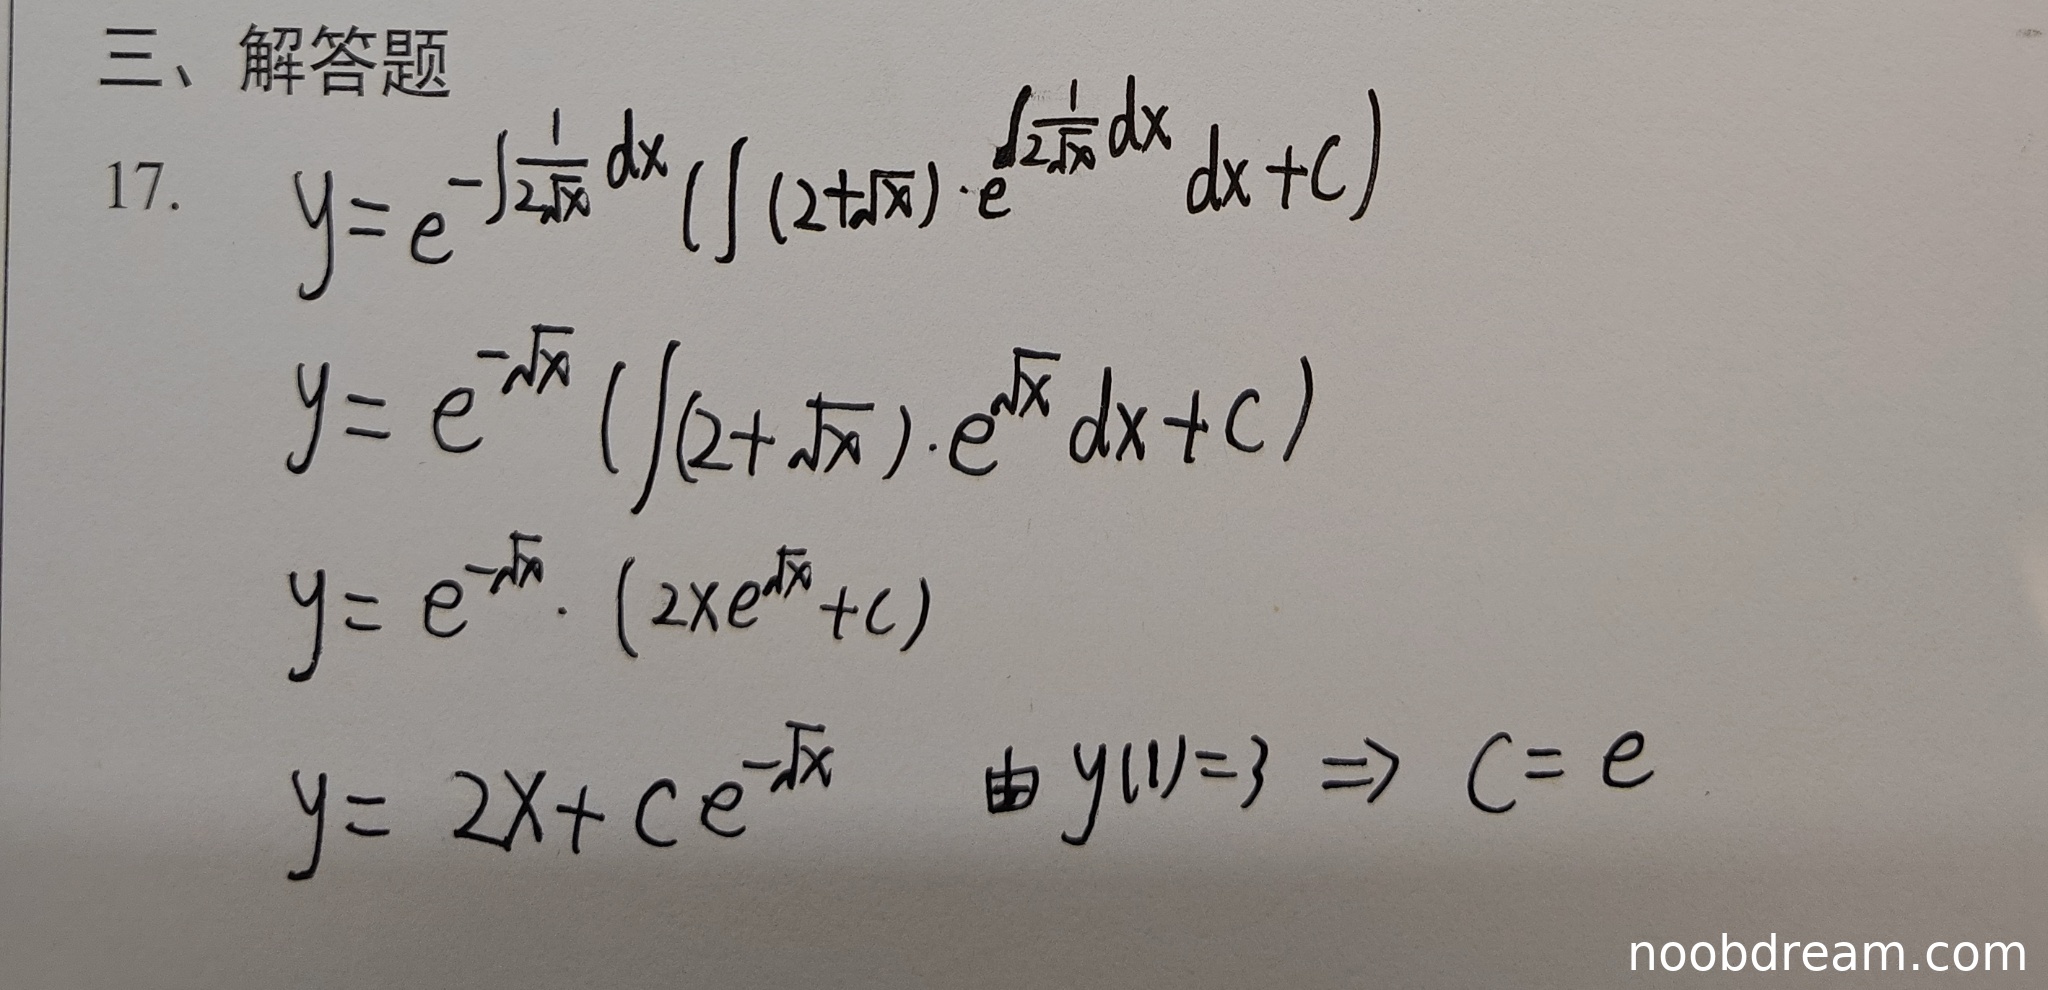 三、解答题
17. y = e^{-∫\frac{1}{2√x}dx} (∫(2+√x)·e^{∫\frac{1}{2√x}dx} dx+C)
y = e^{-√x} (∫(2+√x)·e^{√x} dx+C)
y = e^{-√x}·(2xe^{√x}+C)
y = 2x+Ce^{-√x} 由 y(1)=3 ⇒ C=e
noobdream.com